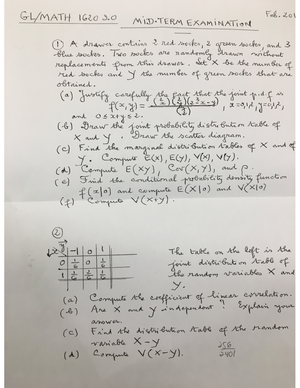 GL/MATH 1620 3.0 MID-TERM EXAMINATION Feb. 201
① A drawer contains 2 red socks, 2 green socks, and 3
blue socks. Two socks are randomly drawn without
replacements from this drawer. Let X be the number of
red socks and Y the number of green socks that are
obtained.
(a) Justify carefully the fact that the joint p.d.f is
f(x,y) = , x=0,1,2, y=0,1,2,
and 0 ≤ x+y ≤ 2.
(b) Draw the joint probability distribution table of
X and Y. Draw the scatter diagram.
(c) Find the marginal distribution tables of X and of
Y. Compute E(X), E(Y), V(X), V(Y).
(d) Compute E(XY), Cov(X,Y), and ρ.
(e) Find the conditional probability density function
f(x|0) and compute E(X|0) and V(X|0)
(f) Compute V(X+Y).
②
-1 0 1
0
1
The table on the left is the
joint distribution table of
the random variables X and
Y.
(a) Compute the coefficient of linear correlation.
(b) Are X and Y independent? Explain your
answer.
(c) Find the distribution table of the random
variable X-Y
(d) Compute V(X-Y).